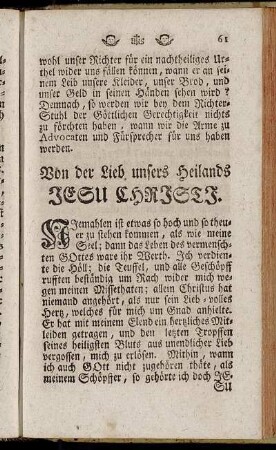 61
wohl unser Richter für ein nachtheiliges Ur-
thel wider uns fällen können, wann er an sei-
nem Leib unsere Kleider, unser Brod, und
unser Geld in seinen Händen sehen wird?
Demnach, so werden wir bey dem Richter-
Stuhl der Göttlichen Gerechtigkeit nichts
zu förchten haben, wann wir die Arme zu
Advocaten und Fürsprecher für uns haben
werden.
Von der Lieb, unsers Heilands
JESU CHRISTI.
NIemahlen ist etwas so hoch und so theu-
er zu stehen kommen, als wie meine
Seel; dann das Leben des vermensch-
ten GOttes ware ihr Werth. Ich verdien-
te die Höll; die Teuffel, und alle Geschöpff
rufften beständig um Rach wider mich we-
gen meinen Missethaten; allein Christus hat
niemand angehört, als nur sein Lieb-volles
Hertz, welches für mich um Gnad anhielte.
Er hat mit meinem Elend ein hertzliches Mit-
leiden getragen, und den letzten Tropffen
seines heiligsten Bluts aus unendlicher Lieb
vergossen, mich zu erlösen. Mithin, wann
ich auch GOtt nicht zugehören thäte, als
meinem Schöpffer, so gehörte ich doch JE-
SU